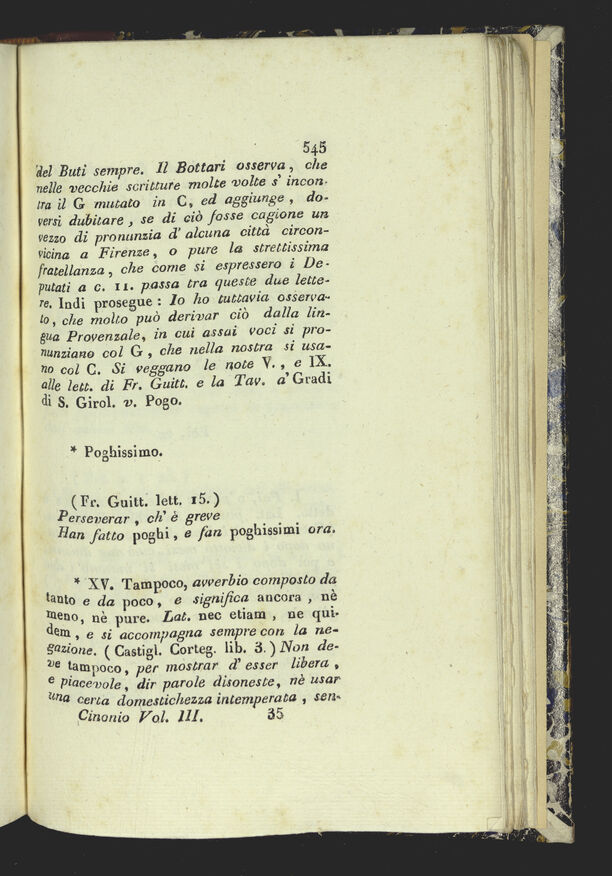 545
del Buti sempre. Il Bottari osserva, che
nelle vecchie scritture molte volte s' incon-
tra il G mutato in C, ed aggiunge, do-
versi dubitare, se di ciò fosse cagione un
vezzo di pronunzia d' alcuna città circon-
vicina a Firenze, o pure la strettissima
fratellanza, che come si espressero i De-
putati a c. 11. passa tra queste due lette-
re. Indi prosegue: Io ho tuttavia osserva-
to, che molto può derivar ciò dalla lin-
gua Provenzale, in cui assai voci si pro-
nunziano col G, che nella nostra si usa-
no col C. Si veggano le note V., e IX.
alle lett. di Fr. Guitt. e la Tav. a' Gradi
di S. Girol. v. Pogo.
* Poghissimo.
(Fr. Guitt. lett. 15.)
Perseverar, ch' è greve
Han fatto poghi, e fan poghissimi ora.
* XV. Tampoco, avverbio composto da
tanto e da poco, e significa ancora, nè
meno, nè pure. Lat. nec etiam, ne qui-
dem, e si accompagna sempre con la ne-
gazione. (Castigl. Corteg. lib. 3.) Non de-
ve tampoco, per mostrar d' esser libera,
e piacevole, dir parole disoneste, nè usar
una certa domestichezza intemperata, sen-
Cinonio Vol. III. 35